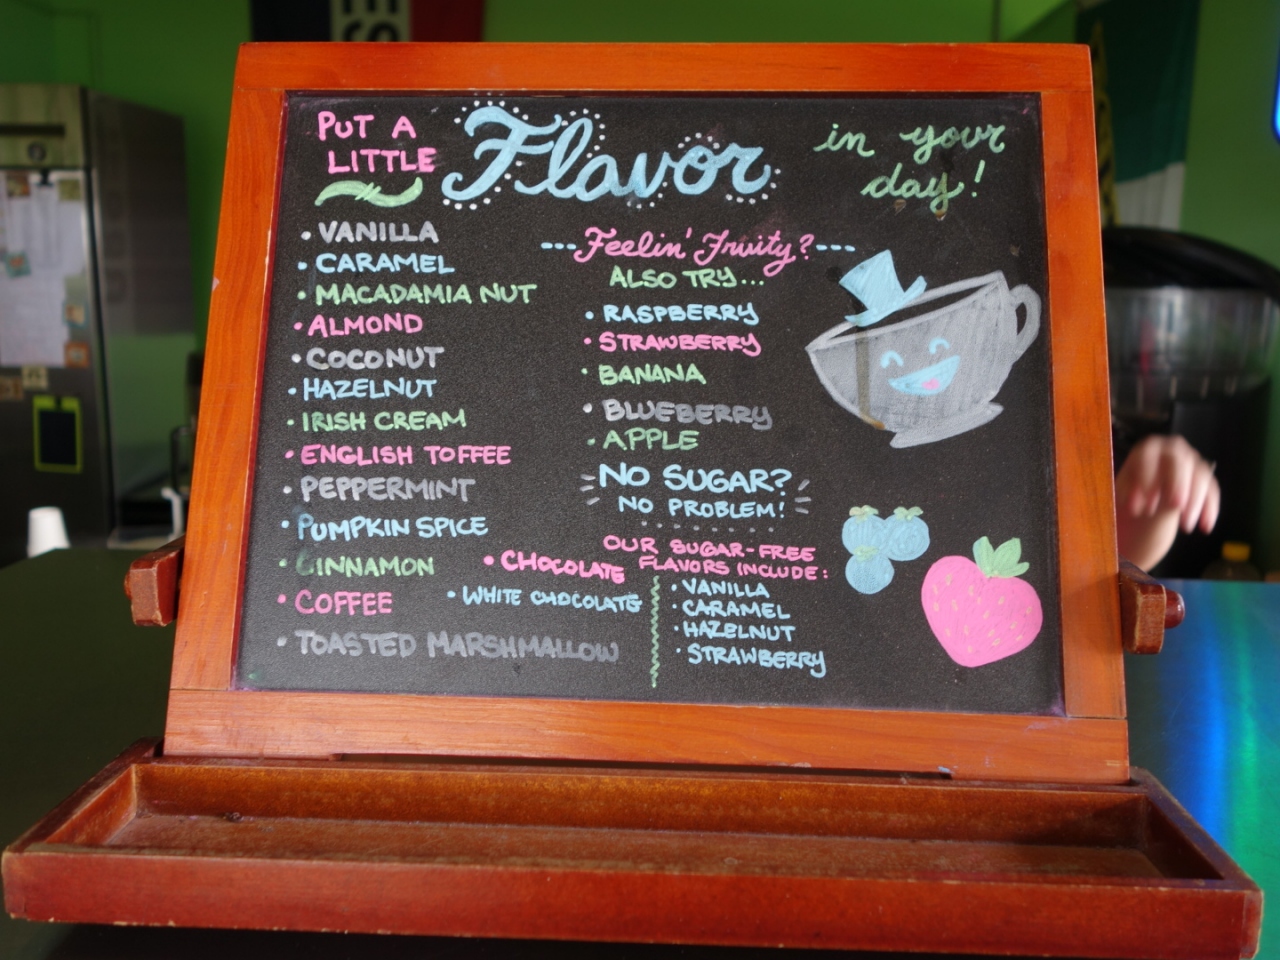 PUT A
LITTLE
Flavor
in your
day!
• VANILLA
• CARAMEL
• MACADAMIA NUT
• ALMOND
• COCONUT
• HAZELNUT
• IRISH CREAM
• ENGLISH TOFFEE
• PEPPERMINT
• PUMPKIN SPICE
• CINNAMON
• CHOCOLATE
• COFFEE
• WHITE CHOCOLATE
• TOASTED MARSHMALLOW
---Feelin' Fruity?---
ALSO TRY...
• RASPBERRY
• STRAWBERRY
• BANANA
• BLUEBERRY
• APPLE
NO SUGAR?
NO PROBLEM!
OUR SUGAR-FREE
FLAVORS INCLUDE:
• VANILLA
• CARAMEL
• HAZELNUT
• STRAWBERRY